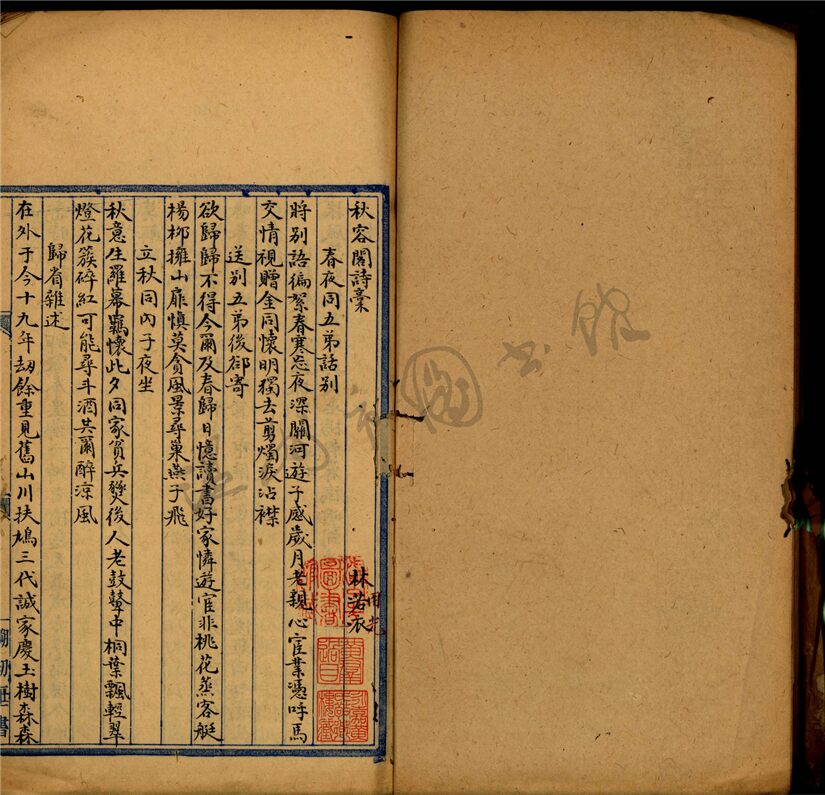 秋客閣詩稾
林若衣
春夜同五弟話別
將別語偏絮春寒忘夜深關河遊子感歲月老親心宦業憑呼馬
交情視贈金同懷明獨去剪燭淚沾襟
送別五弟後卻寄
欲歸歸不得今爾及春歸日憶讀書好家憐遊宦非桃花蒸客艇
楊柳擁山扉慎莫貪風景尋巢燕子飛
立秋同內子夜坐
秋意生羅幕羈懷此夕同家貧兵燹後人老鼓鼙中桐葉飄輕翠
燈花簇碎紅可能尋斗酒共爾醉涼風
歸省雜述
在外于今十九年劫餘重見舊山川扶鳩三代誠家慶玉樹森森